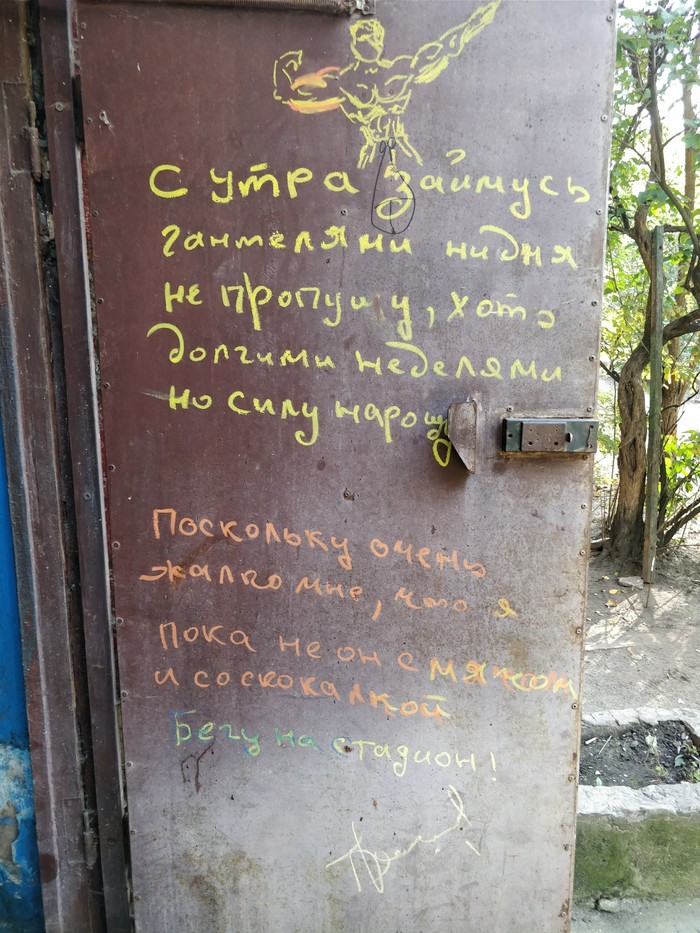 С утра займусь
гантелями ни дня
не пропущу, хотя
долгими неделями
но силу нарощу
Поскольку очень
жалко мне, что я
пока не он с мячом
и со скокалкой
Бегу на стадион!